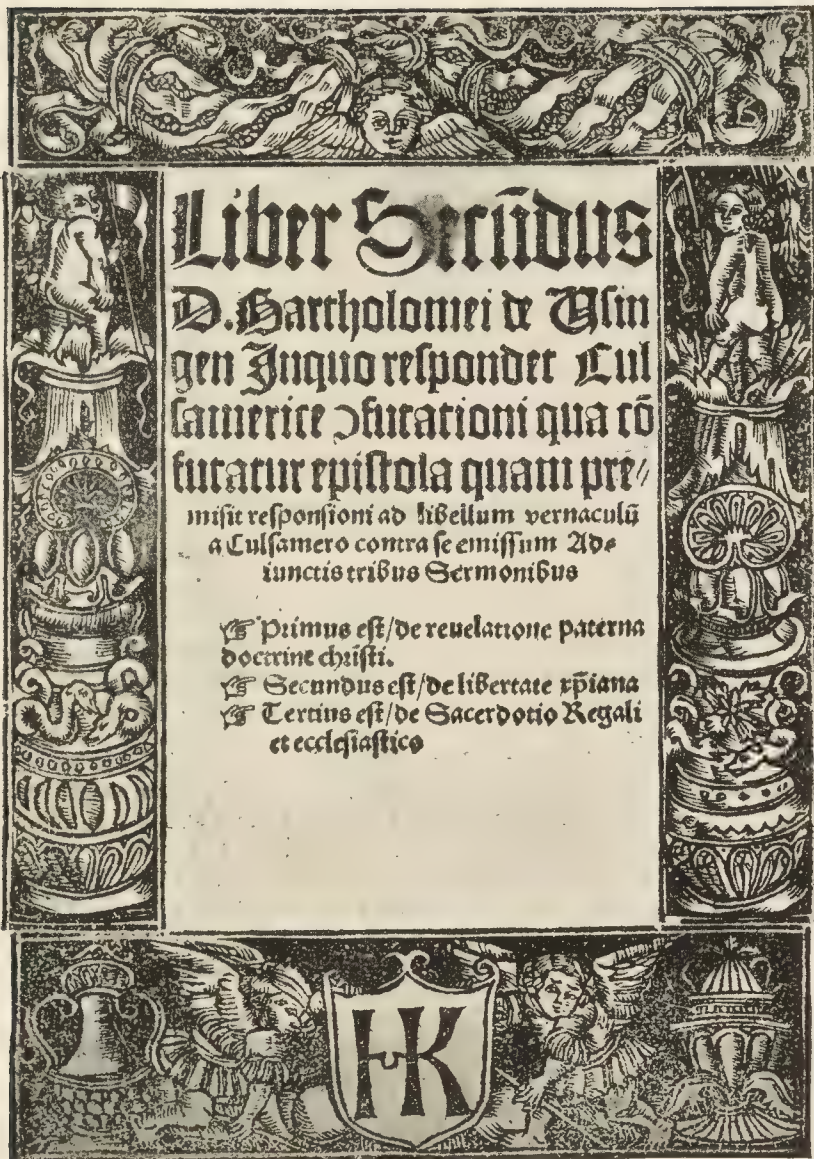 Liber Secūdus
D. Bartholomei de Uſin
gen Inquo reſpondet Cul
ſamerice ↄfutationi qua cō
futatur epiſtola quam pre⸗
miſit reſponſioni ad libellum vernaculū
a Culſamero contra ſe emiſſum Ad⸗
iunctis tribus Sermonibus
☞ Primus eſt/de reuelatione paterna
doctrine chriſti.
☞ Secundus eſt/de libertate xp̄iana
☞ Tertius eſt/de Sacerdotio Regali
et eccleſiaſtico
HK